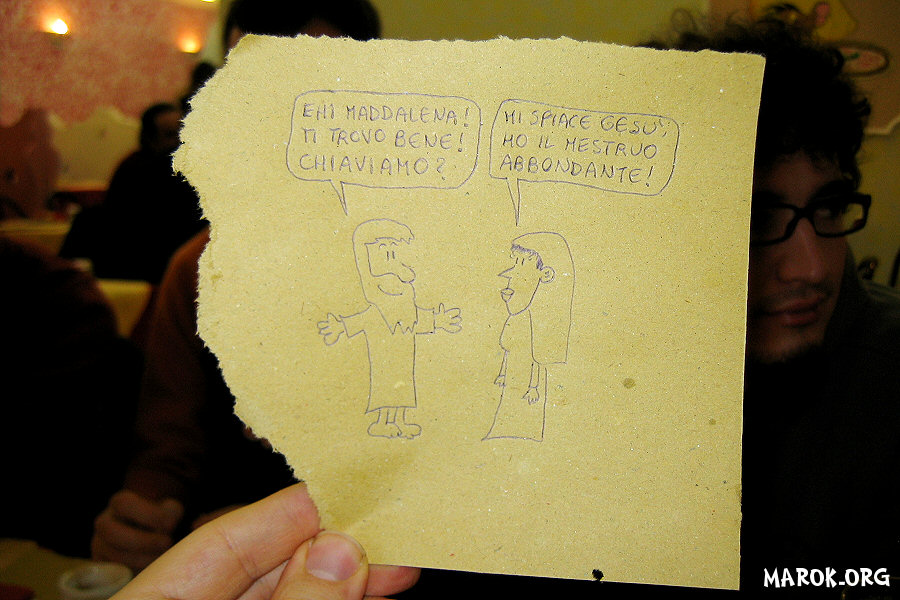 EHI MADDALENA!
TI TROVO BENE!
CHIAVIAMO?
MI SPIACE GESU',
HO IL MESTRUO
ABBONDANTE!
MAROK.ORG